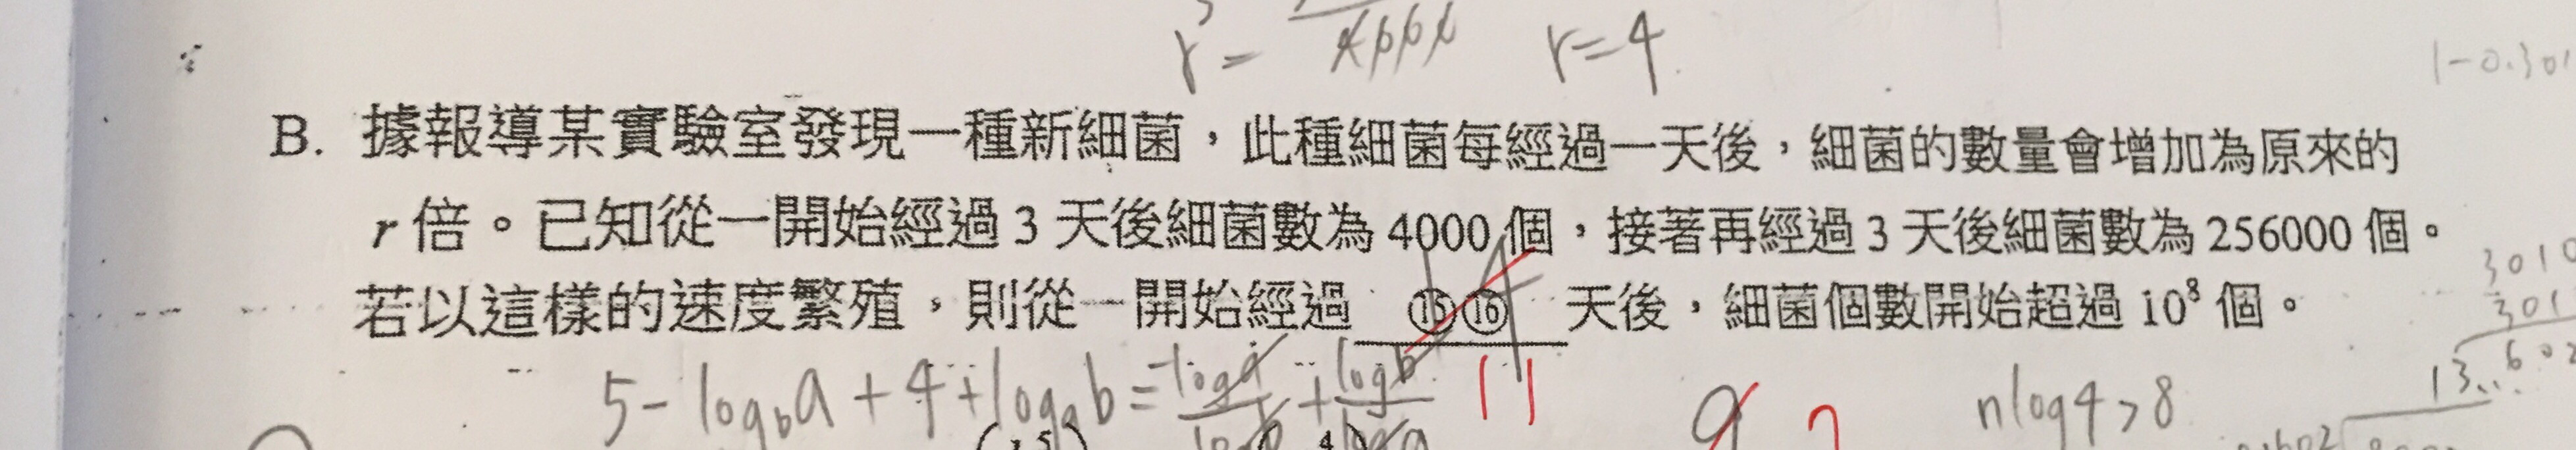 r = r=4
1-0.301
B. 據報導某實驗室發現一種新細菌，此種細菌每經過一天後，細菌的數量會增加為原來的
r 倍。已知從一開始經過 3 天後細菌數為 4000 個，接著再經過 3 天後細菌數為 256000 個。
若以這樣的速度繁殖，則從一開始經過 ⑮⑯ 天後，細菌個數開始超過 10⁸ 個。
3010
301
5-log_b a+4+log_a b= 11
nlog4>8
13..